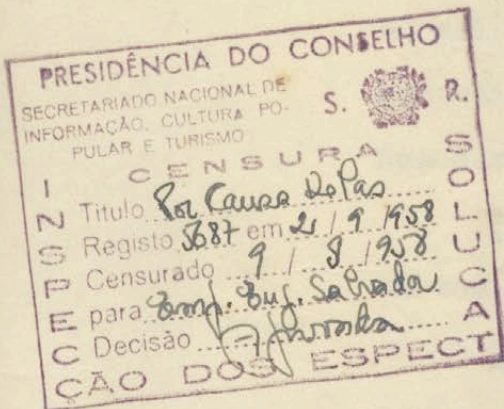 PRESIDÊNCIA DO CONSELHO
SECRETARIADO NACIONAL DE
INFORMAÇÃO, CULTURA PO-
PULAR E TURISMO
S. R.
CENSURA
Titulo Por Causa De Pas
Registo 5687 em 2 / 9 / 1958
Censurado 9 / 9 / 1958
para Emp. Eug. Salvador
Decisão Aprovada
INSPECÇÃO DOS ESPECT